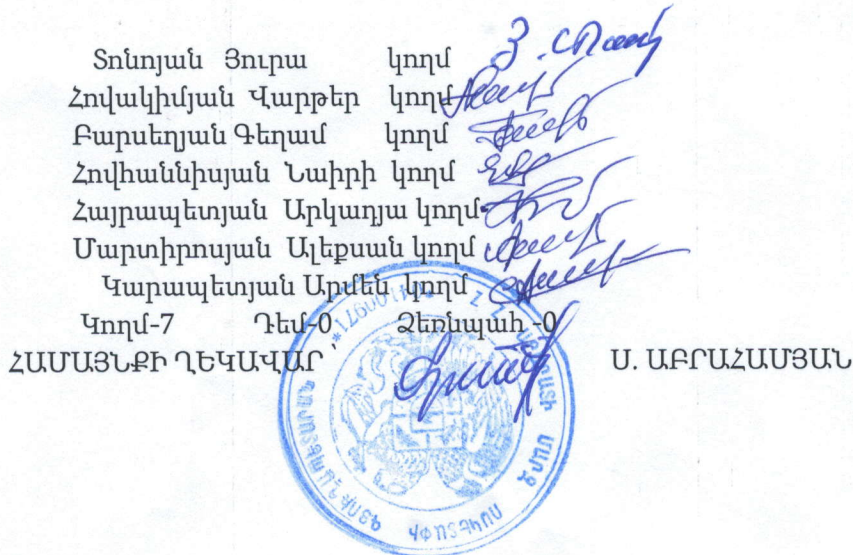 Տոնոյան Յուրա կողմ
Հովակիմյան Վարթեր կողմ
Բարսեղյան Գեղամ կողմ
Հովհաննիսյան Նաիրի կողմ
Հայրապետյան Արկադյա կողմ
Մարտիրոսյան Ալեքսան կողմ
Կարապետյան Արմեն կողմ
Կողմ-7 Դեմ-0 Ձեռնպահ -0
ՀԱՄԱՅՆՔԻ ՂԵԿԱՎԱՐ ՝ Ս. ԱԲՐԱՀԱՄՅԱՆ